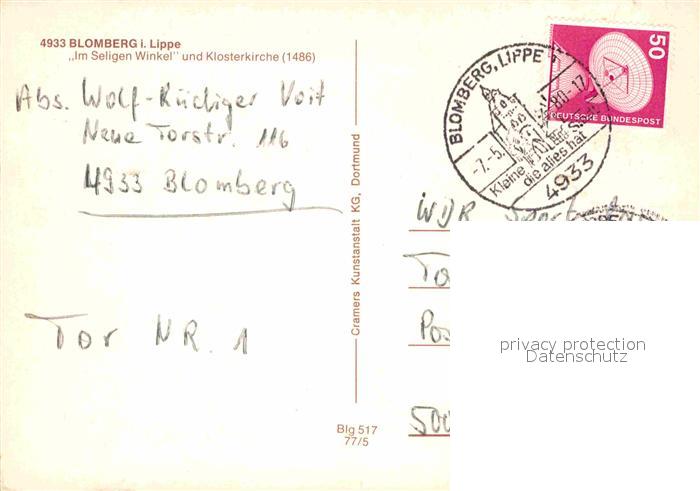 4933 BLOMBERG i. Lippe
„Im Seligen Winkel" und Klosterkirche (1486)
Abs. Wolf-Rüdiger Voit
Neue Torstr. 116
4933 Blomberg
Tor NR. 1
Cramers Kunstanstalt KG, Dortmund
Blg 517
77/5
50
DEUTSCHE BUNDESPOST
BLOMBERG, LIPPE 1
-7.-5.
80-17
Kleine
die alles hat
4933
WDR Sport
To
Pos
500
privacy protection
Datenschutz